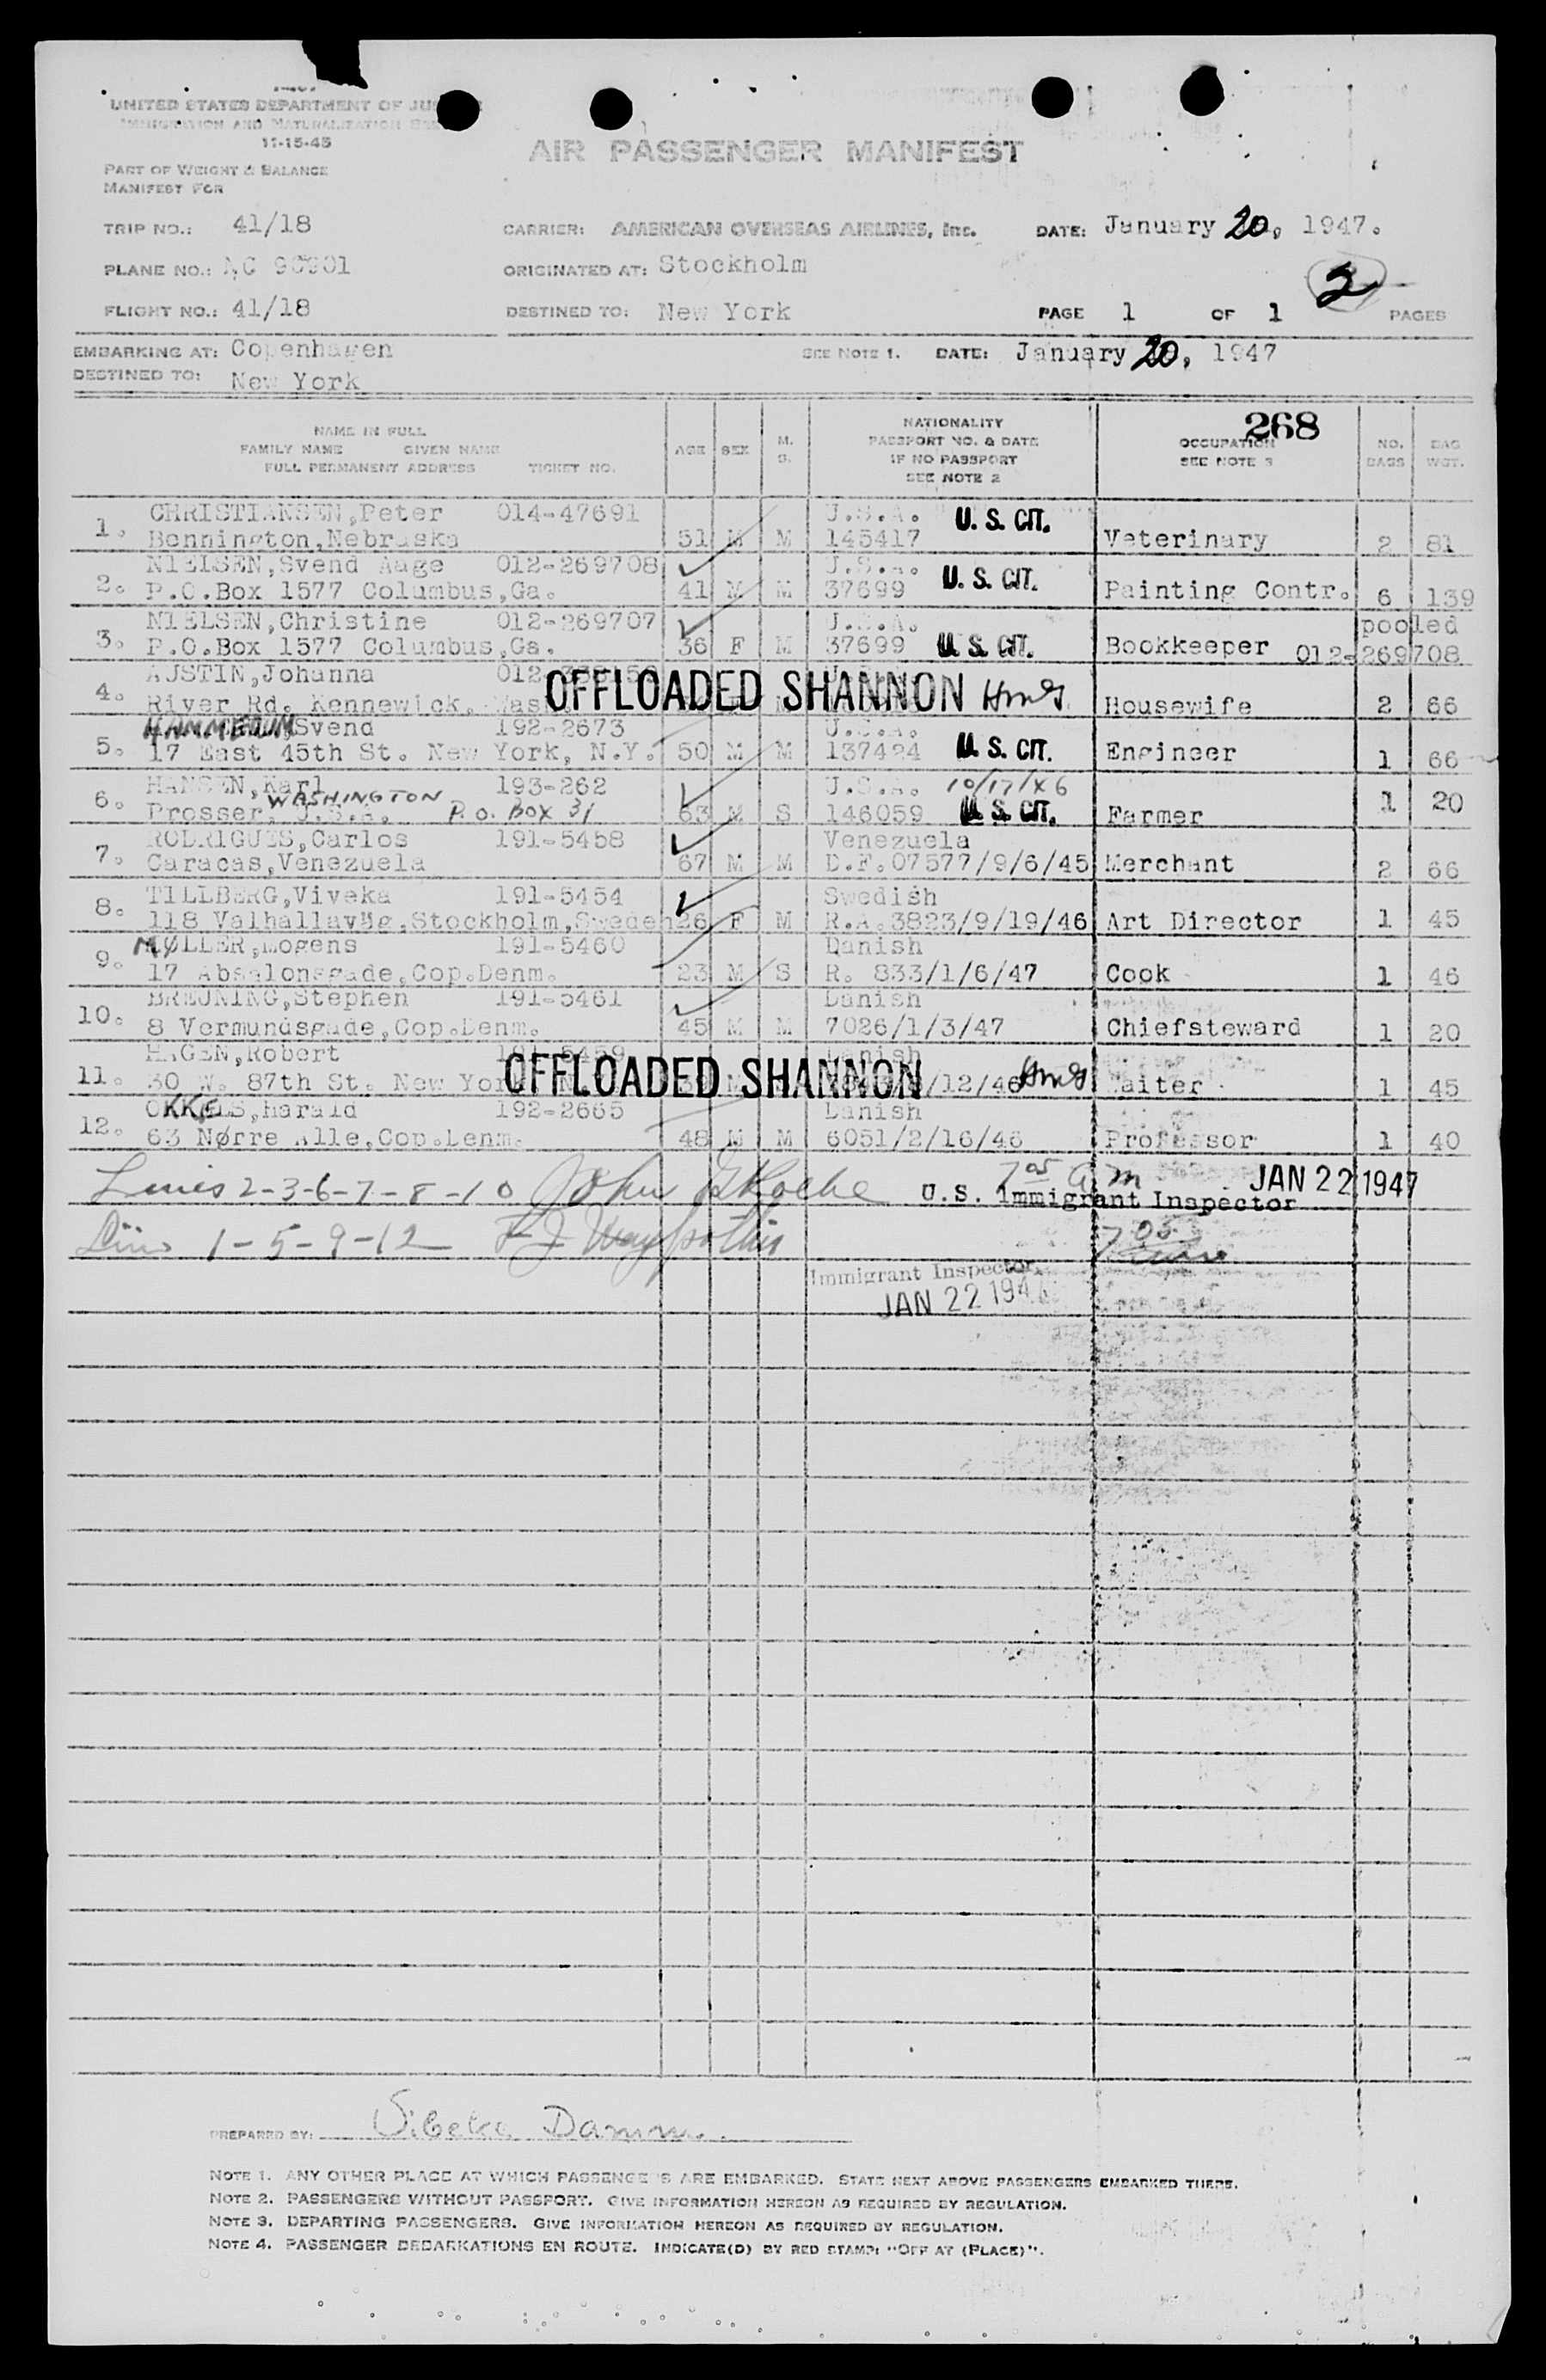 UNITED STATES DEPARTMENT OF
IMMIGRATION AND NATURALIZATION
11-15-45
AIR PASSENGER MANIFEST
PART OF WEIGHT & BALANCE
MANIFEST FOR
TRIP NO.: 41/18 CARRIER: AMERICAN OVERSEAS AIRLINES, Inc. DATE: January 20, 1947.
PLANE NO.: NC 90901 ORIGINATED AT: Stockholm
2
FLIGHT NO.: 41/18 DESTINED TO: New York PAGE 1 OF 1 PAGES
EMBARKING AT: Copenhagen SEE NOTE 1. DATE: January 20, 1947
DESTINED TO: New York
268
NAME IN FULL
FAMILY NAME GIVEN NAME
FULL PERMANENT ADDRESS TICKET NO.
AGE SEX M. S.
NATIONALITY
PASSPORT NO. & DATE
IF NO PASSPORT
SEE NOTE 2
OCCUPATION
SEE NOTE 3
NO. BAGS
BAG WGT.
CHRISTIANSEN,Peter 014-47691 U.S.A. U. S. CIT.
1. Bennington,Nebraska 51 M M 145417 Veterinary 2 81
NIELSEN,Svend Aage 012-269708 U.S.A. U. S. CIT.
2. P.O.Box 1577 Columbus,Ga. 41 M M 37699 Painting Contr. 6 139
NIELSEN,Christine 012-269707 U.S.A. pooled
3. P.O.Box 1577 Columbus,Ga. 36 F M 37699 U. S. CIT. Bookkeeper 012-269708
AUSTIN,Johanna 012-
OFFLOADED SHANNON
4. River Rd. Kennewick, Wash Housewife 2 66
HAMMEDUM,Svend 192-2673 U.S.A.
5. 17 East 45th St. New York, N.Y. 50 M M 137424 U. S. CIT. Engineer 1 66
HANSEN,Karl 193-262 U.S.A. 10/17/46
6. Prosser, U.S.A. WASHINGTON P.O. BOX 31 63 M S 146059 U. S. CIT. Farmer 1 20
RODRIGUES,Carlos 191-5458 Venezuela
7. Caracas,Venezuela 67 M M D.F.07577/9/6/45 Merchant 2 66
TILLBERG,Viveka 191-5454 Swedish
8. 118 Valhallaväg,Stockholm,Sweden 26 F M R.A.3823/9/19/46 Art Director 1 45
MØLLER,Mogens 191-5460 Danish
9. 17 Absalonsgade,Cop.Denm. 23 M S R. 833/1/6/47 Cook 1 46
BREUNING,Stephen 191-5461 Danish
10. 8 Vermundsgade,Cop.Denm. 45 M M 7026/1/3/47 Chiefsteward 1 20
HAGEN,Robert 191-5459 Danish
OFFLOADED SHANNON
11. 30 W. 87th St. New York /12/46 Waiter 1 45
OKKELS,Harald 192-2665 Danish
12. 63 Nørre Alle,Cop.Denm. 48 M M 6051/2/16/46 Professor 1 40
Lines 2-3-6-7-8-10 John G Roche 7 05 am JAN 22 1947
U.S. Immigrant Inspector
Lines 1-5-9-12 7 05
Immigrant Inspector
JAN 22 194
PREPARED BY: Vibeke Damm.
NOTE 1. ANY OTHER PLACE AT WHICH PASSENGERS ARE EMBARKED. STATE NEXT ABOVE PASSENGERS EMBARKED THERE.
NOTE 2. PASSENGERS WITHOUT PASSPORT. GIVE INFORMATION HEREON AS REQUIRED BY REGULATION.
NOTE 3. DEPARTING PASSENGERS. GIVE INFORMATION HEREON AS REQUIRED BY REGULATION.
NOTE 4. PASSENGER DEBARKATIONS EN ROUTE. INDICATE(D) BY RED STAMP: "OFF AT (PLACE)".